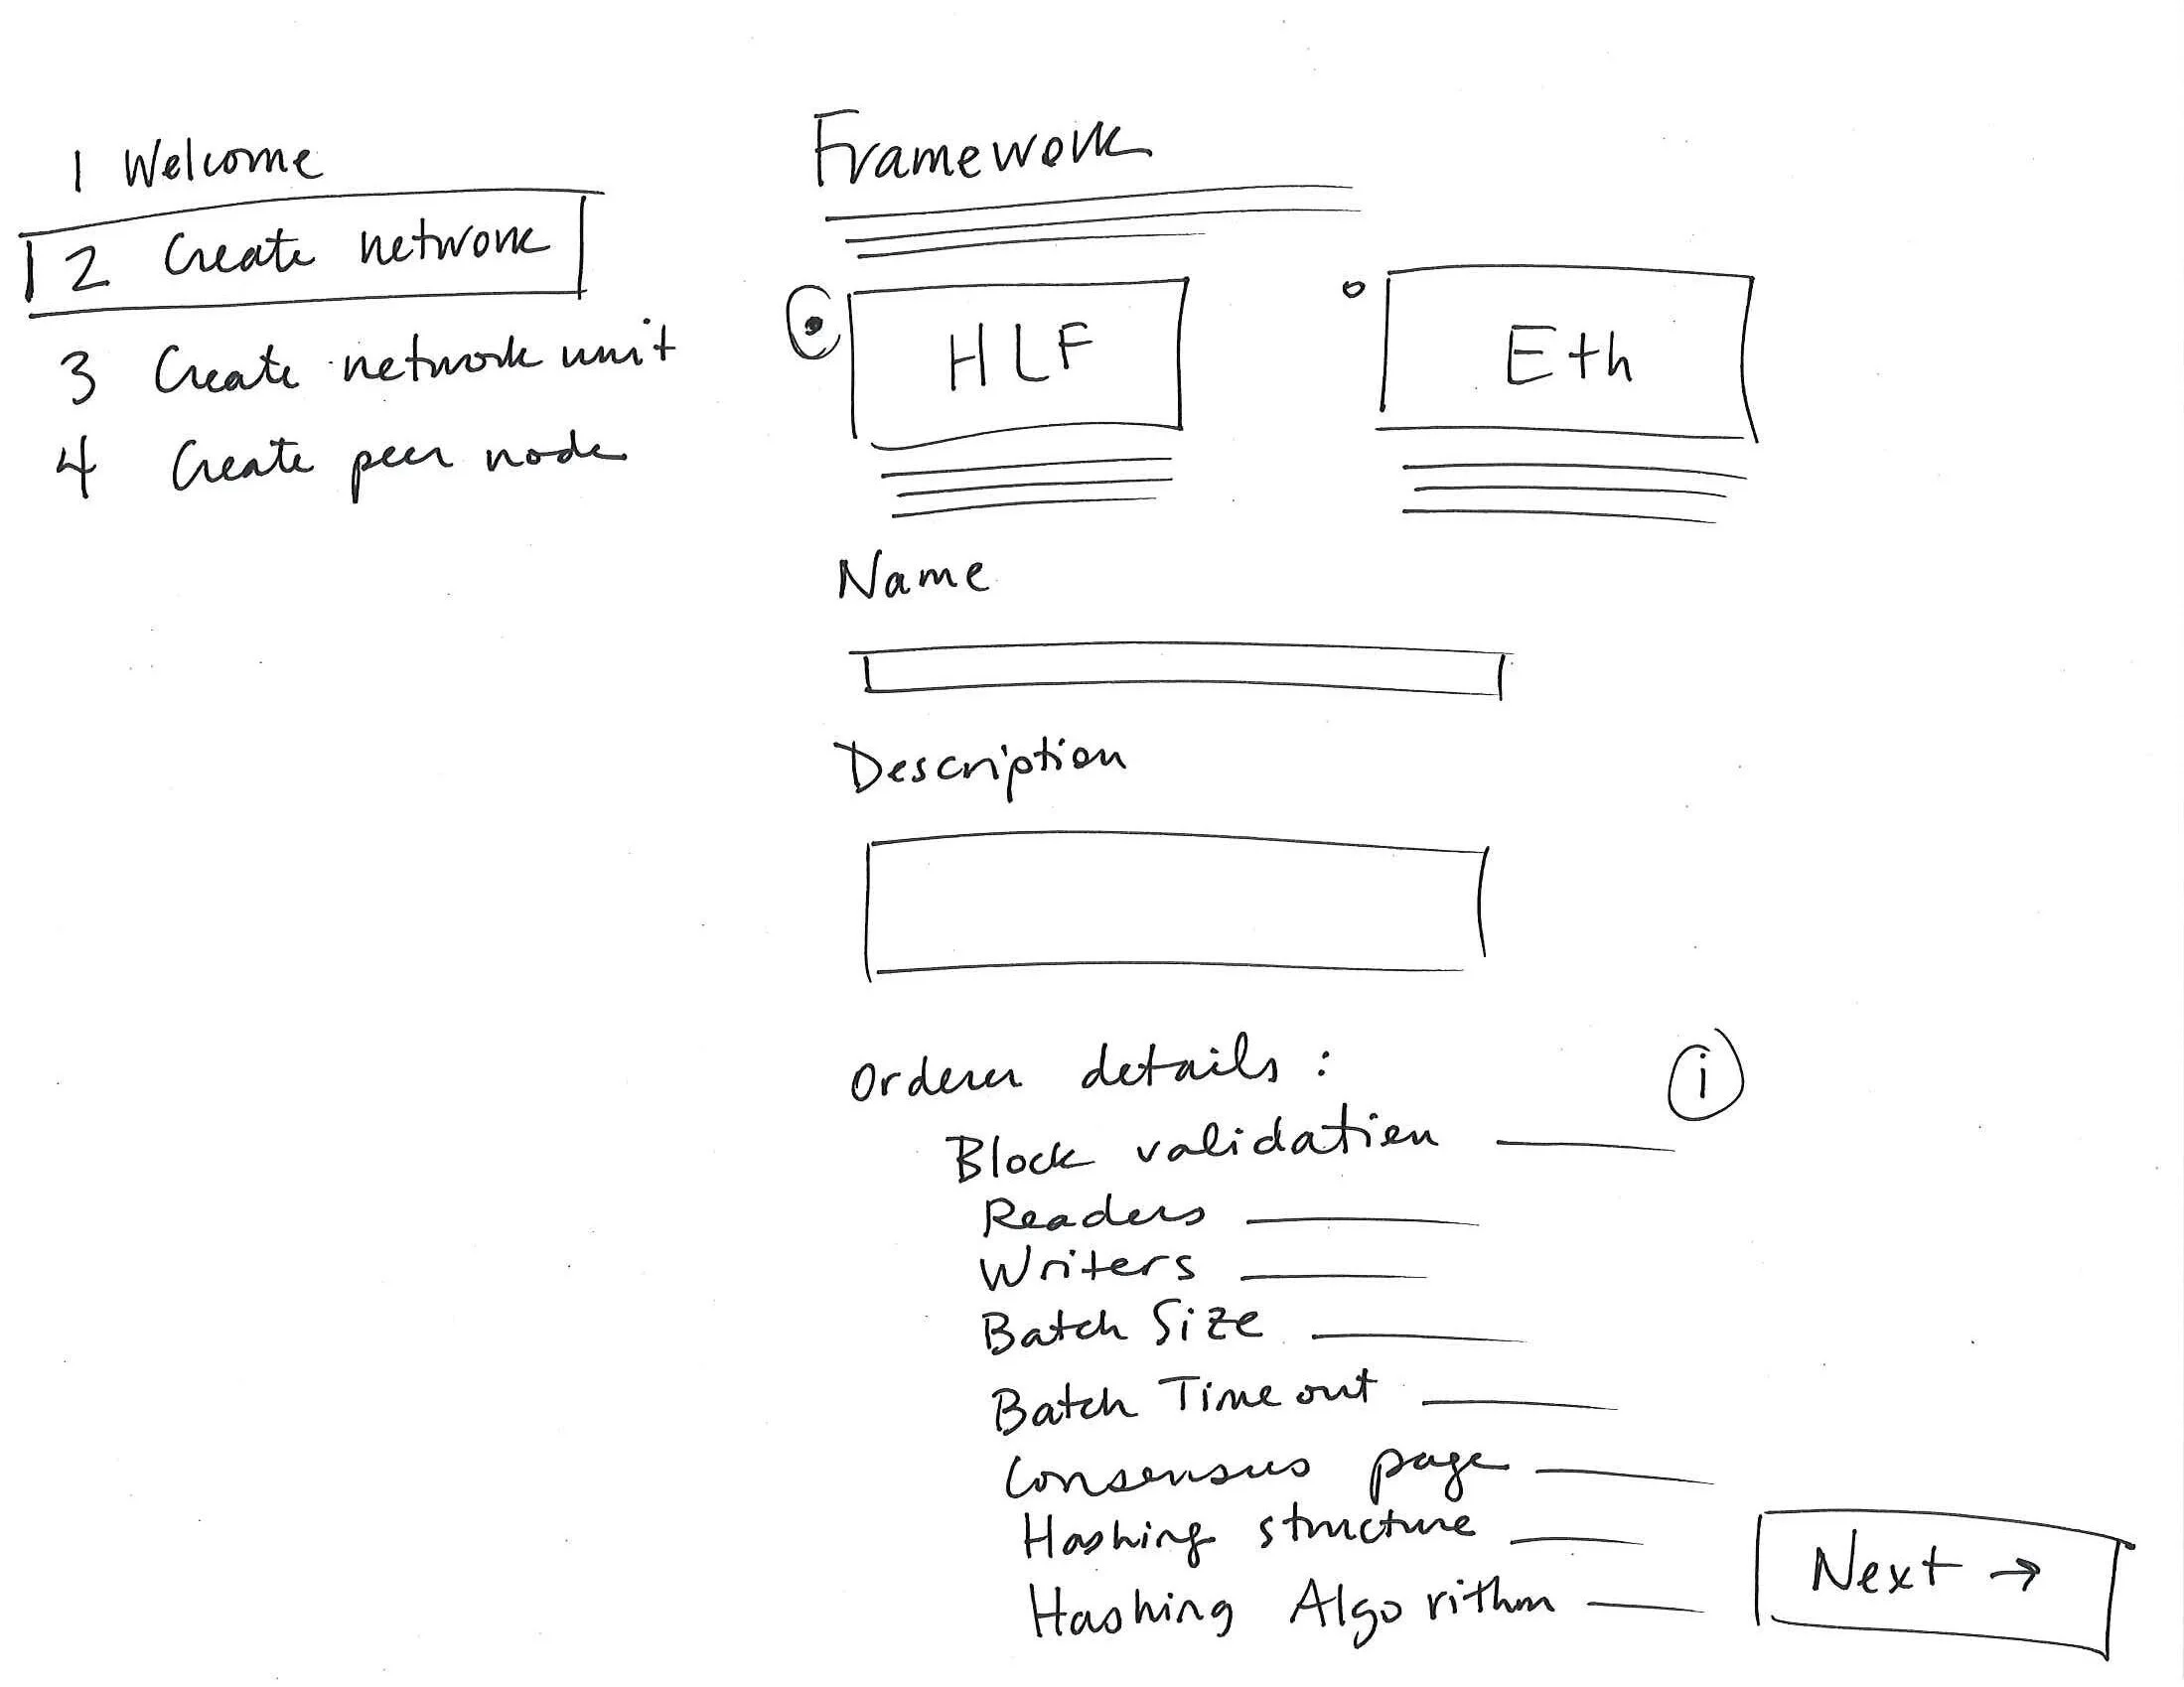 1 Welcome
2 Create network
3 Create network unit
4 Create peer node
Framework
HLF
Eth
Name
Description
Orderer details :
i
Block validation
Readers
Writers
Batch Size
Batch Timeout
Consensus page
Hashing structure
Hashing Algorithm
Next →